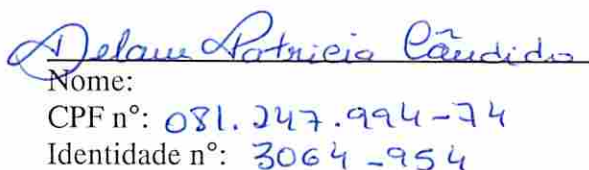 Delane Patricia Cândido
Nome:
CPF n°: 081.247.994-74
Identidade n°: 3064-954